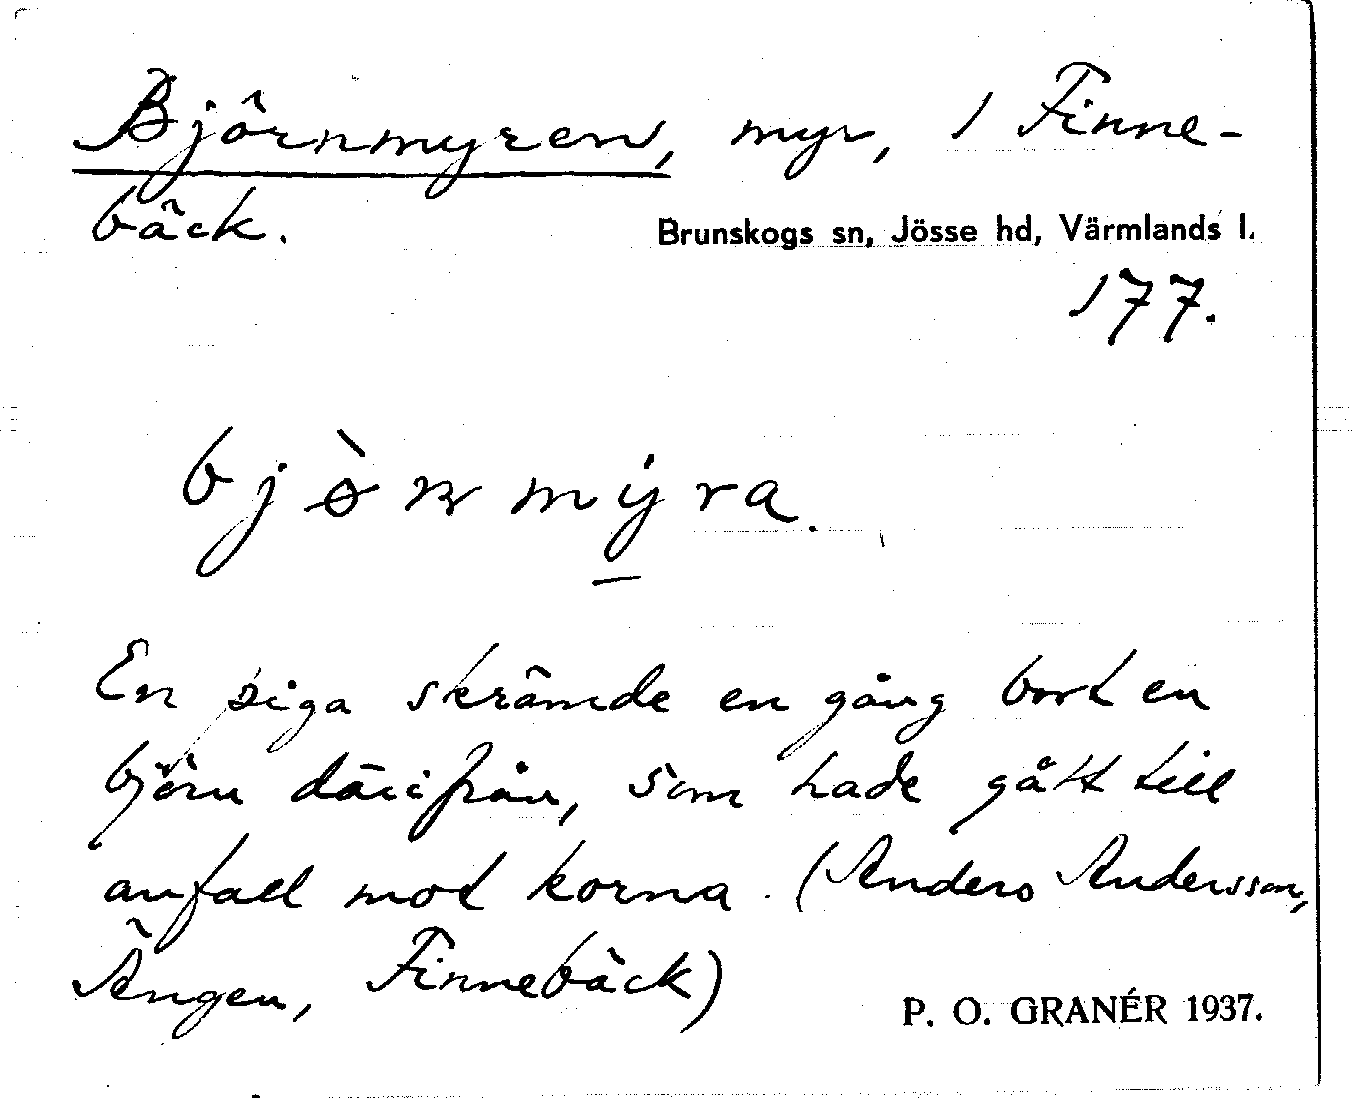 Björnmyren, myr, 1 Finne-
bäck.
Brunskogs sn, Jösse hd, Värmlands l.
177.
bjø̀nmýra.
En piga skrämde en gång bort en
björn därifrån, som hade gått till
anfall mot korna. (Anders Andersson,
Ängen, Finnebäck)
P. O. GRANÉR 1937.